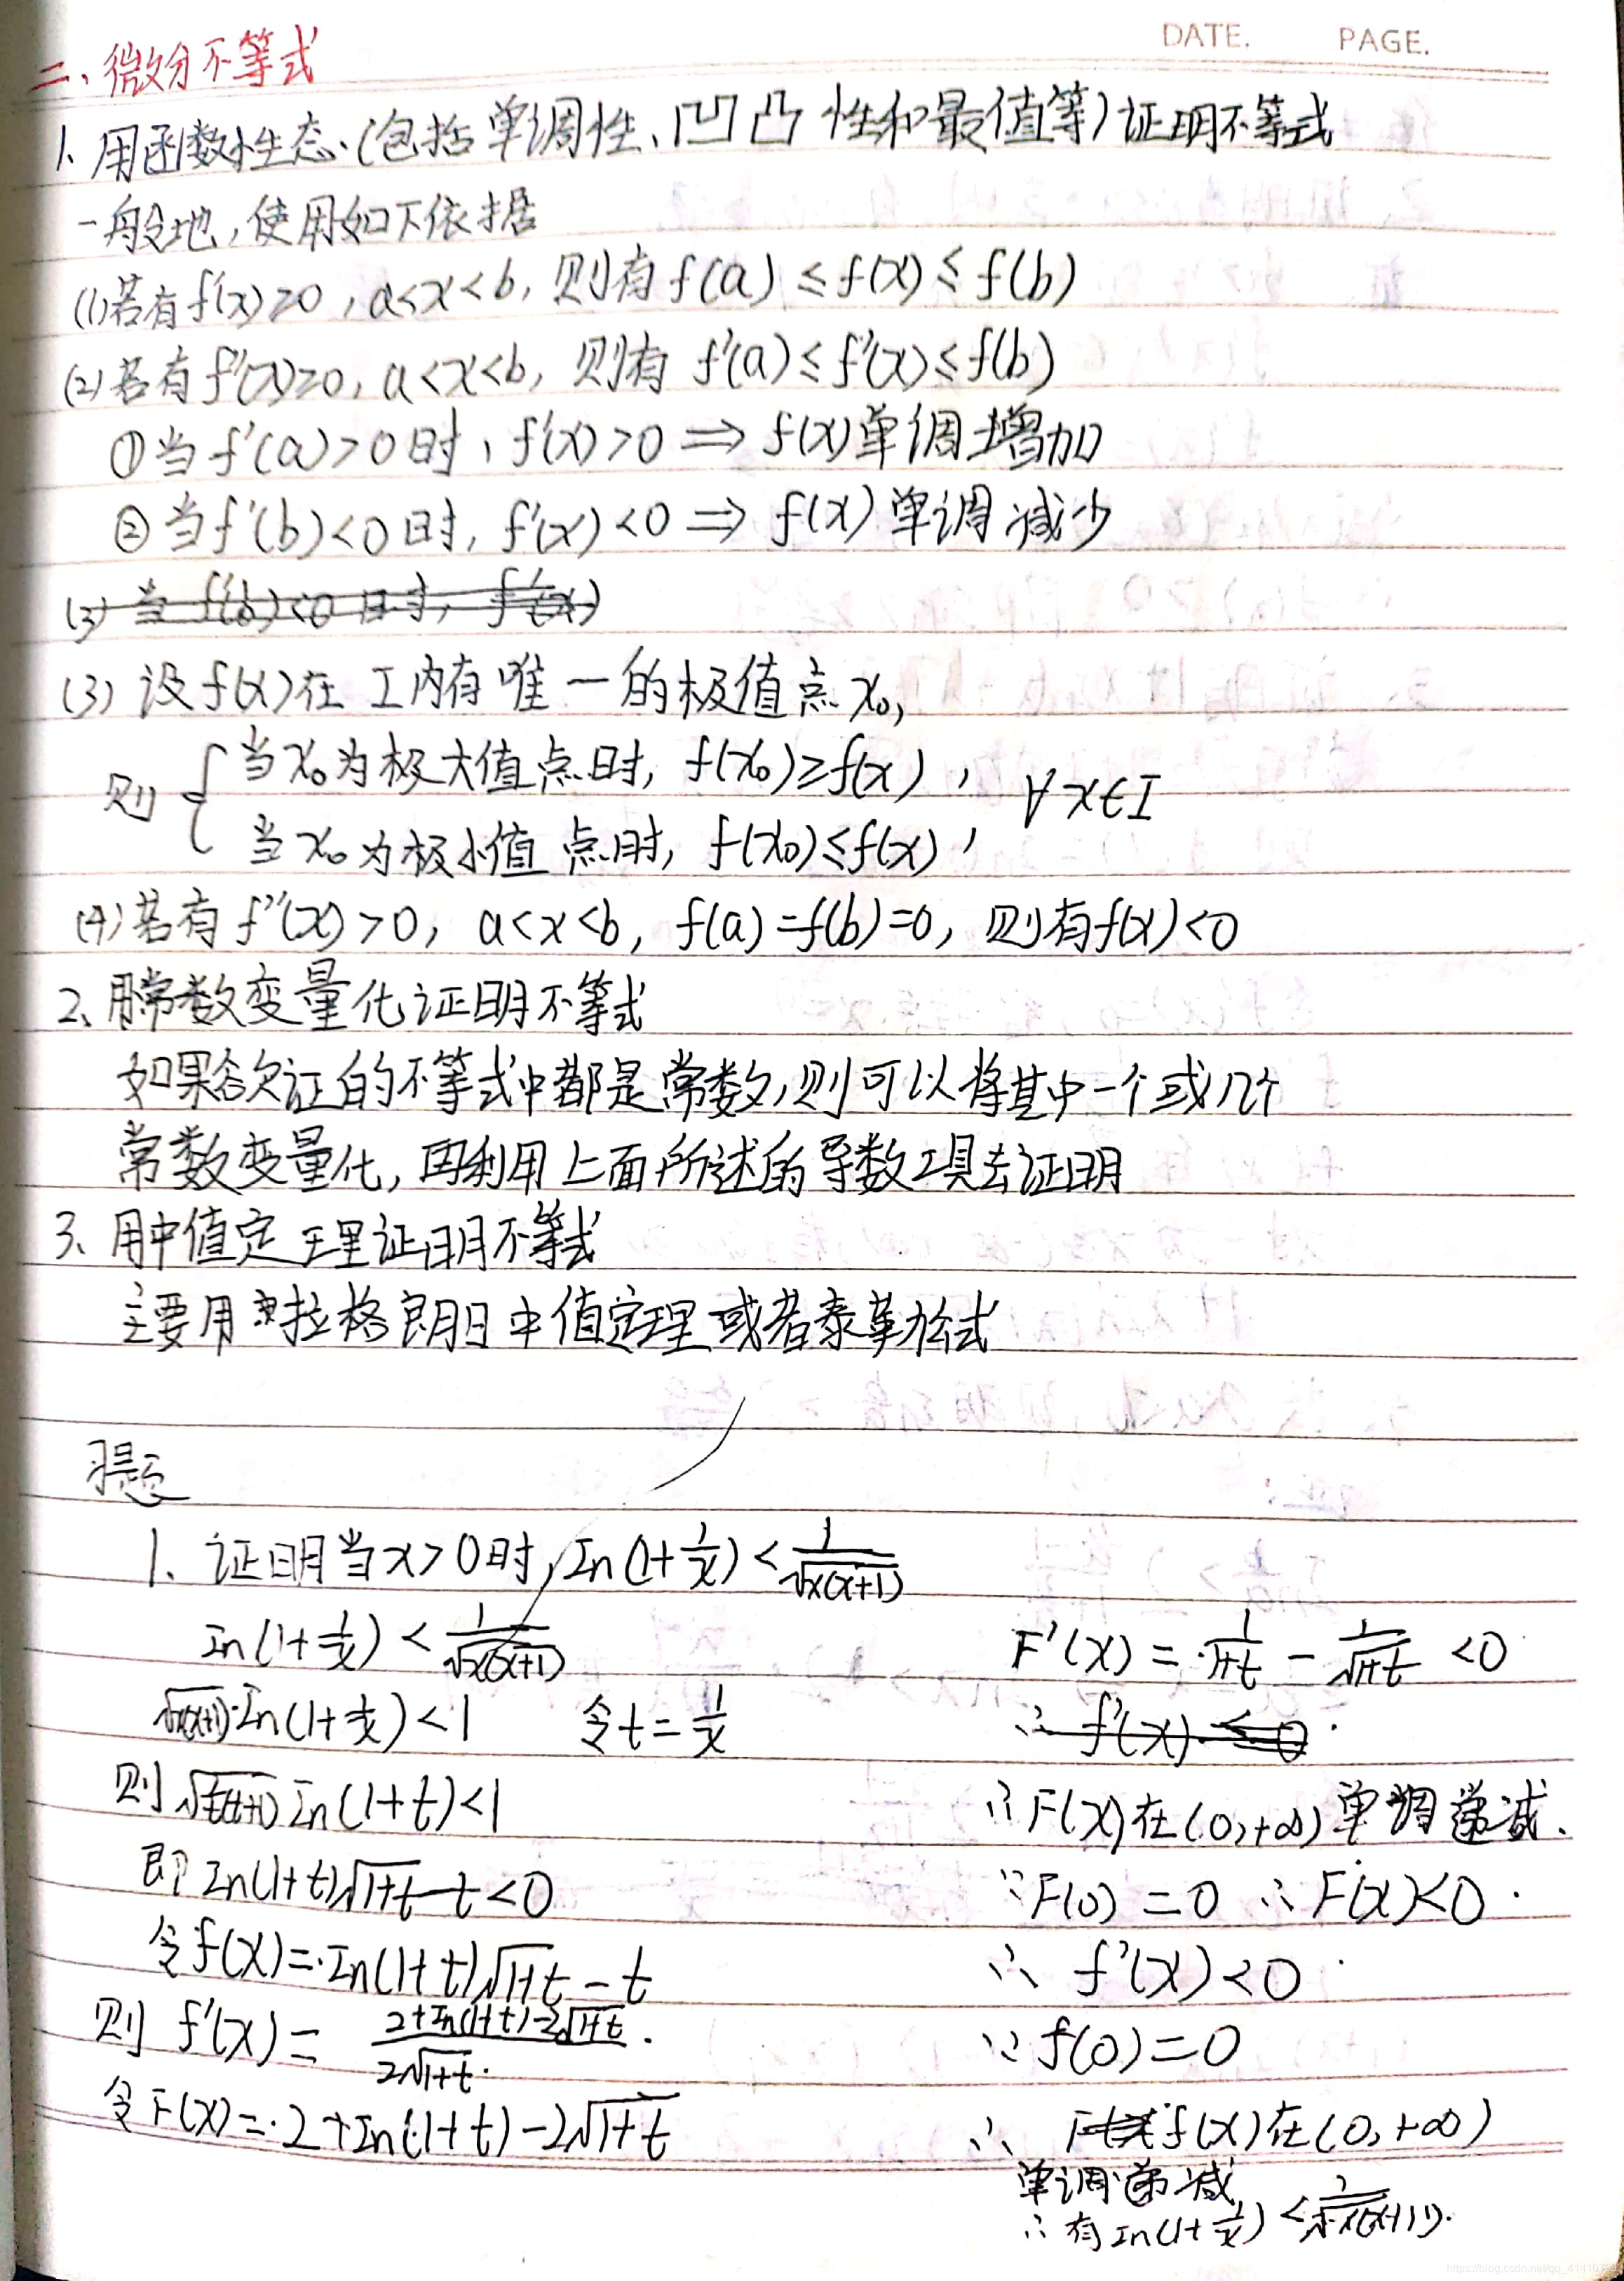 DATE. PAGE.
二、微分不等式
1、用函数性态(包括单调性、凹凸性和最值等)证明不等式
一般地,使用如下依据
(1)若有f'(x)≥0,a<x<b,则有f(a)≤f(x)≤f(b)
(2)若有f''(x)≥0,a<x<b,则有 f'(a)≤f'(x)≤f(b)
①当f'(a)>0时,f'(x)>0⇒f(x)单调增加
②当f'(b)<0时,f'(x)<0⇒f(x)单调减少
(3) 当 f'(b)<0 时, f'(x)
(3) 设f(x)在I内有唯一的极值点x₀,
则 { 当x₀为极大值点时,f(x₀)≥f(x),
当x₀为极小值点时,f(x₀)≤f(x), ∀x∈I
(4)若有f''(x)>0,a<x<b,f(a)=f(b)=0,则有f(x)<0
2、用常数变量化证明不等式
如果欲证的不等式中都是常数,则可以将其中一个或几个
常数变量化,再利用上面所述的导数工具去证明
3、用中值定理证明不等式
主要用拉格朗日中值定理或者泰勒公式
习题
1. 证明当x>0时,In(1+1/x)<1/√x(x+1)
In(1+1/x)<1/√x(x+1)
√x(x+1)·In(1+1/x)<1 令t=1/x
则√t(t+1) In(1+t)<1
即In(1+t)√1+t-t<0
令f(x)=In(1+t)√1+t-t
则 f'(x)=2+In(1+t)-2√1+t / 2√1+t.
令F(x)=2+In(1+t)-2√1+t
F'(x)=1/1+t-1/√1+t<0
∴ f'(x)<0
∴F(x)在(0,+∞)单调递减.
∵F(0)=0 ∴F(x)<0.
∴ f'(x)<0
∵f(0)=0
∴ f(x)在(0,+∞)
单调递减
∴有In(1+1/x)<1/√x(x+1).